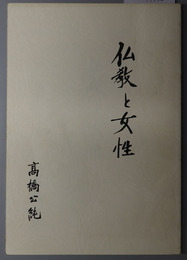 仏教と女性
高橋公純